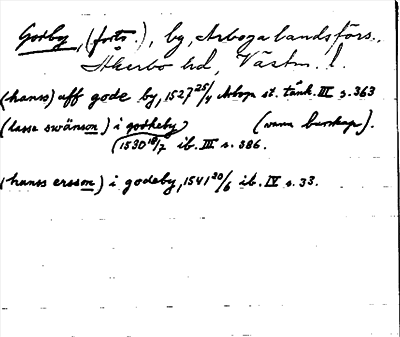 Godby, (forts.), by, Arboga landsförs.,
Åkerbo hd, Västm. l.
(hanss) aff gode by, 1527 25/4 Arboga st. tänk. III s. 363
(lassa swänson) i godheby (wann burskap).
(1530 18/7 ib. III s. 386.
(hanss ersson) i godeby, 1541 20/6 ib. IV s. 33.